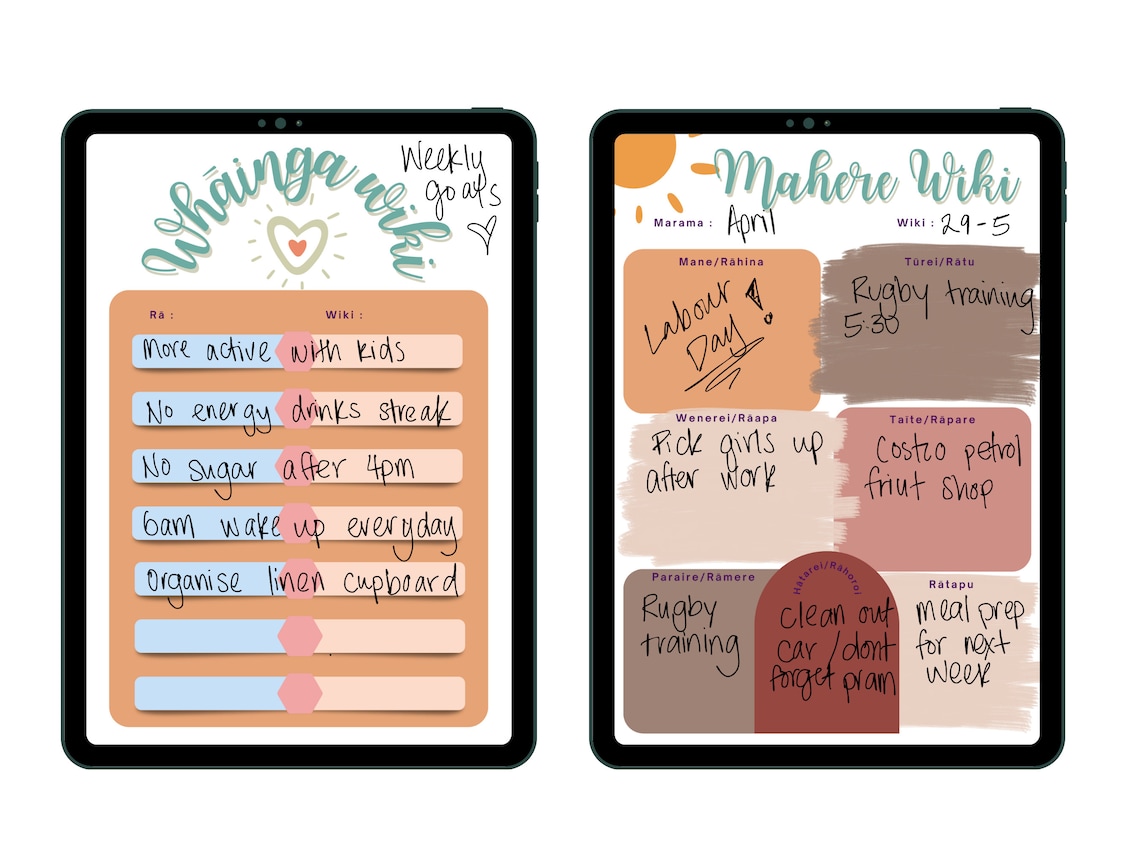 Whāinga wiki
Weekly
goals
Rā :
Wiki :
More active with kids
No energy drinks streak
No sugar after 4pm
6am wake up everyday
Organise linen cupboard
Mahere Wiki
Marama : April
Wiki : 29-5
Mane/Rāhina
Labour
Day !
Tūrei/Rātu
Rugby training
5:30
Wenerei/Rāapa
Pick girls up
after work
Taite/Rāpare
Costco petrol
friut shop
Paraire/Rāmere
Rugby
training
Hātarei/Rāhoroi
clean out
car / dont
forget pram
Rātapu
meal prep
for next
week